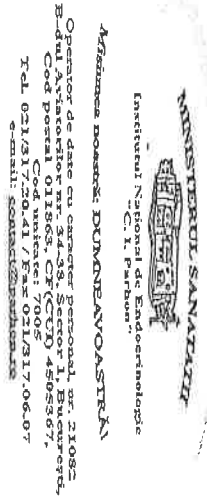 MINISTERUL SANATATII
Institutul National de Endocrinologie
"C. I. Parhon"
Misiunea noastră: DUMNEAVOASTRĂ!
Operator de date cu caracter personal, nr. 21082
B-dul Aviatorilor nr. 34-38, Sector 1, Bucureşti,
Cod postal 011863, CF(CUI) 4505367,
Cod unitate: 7005
Tel. 021/317.20.41 / Fax 021/317.06.07
e-mail: